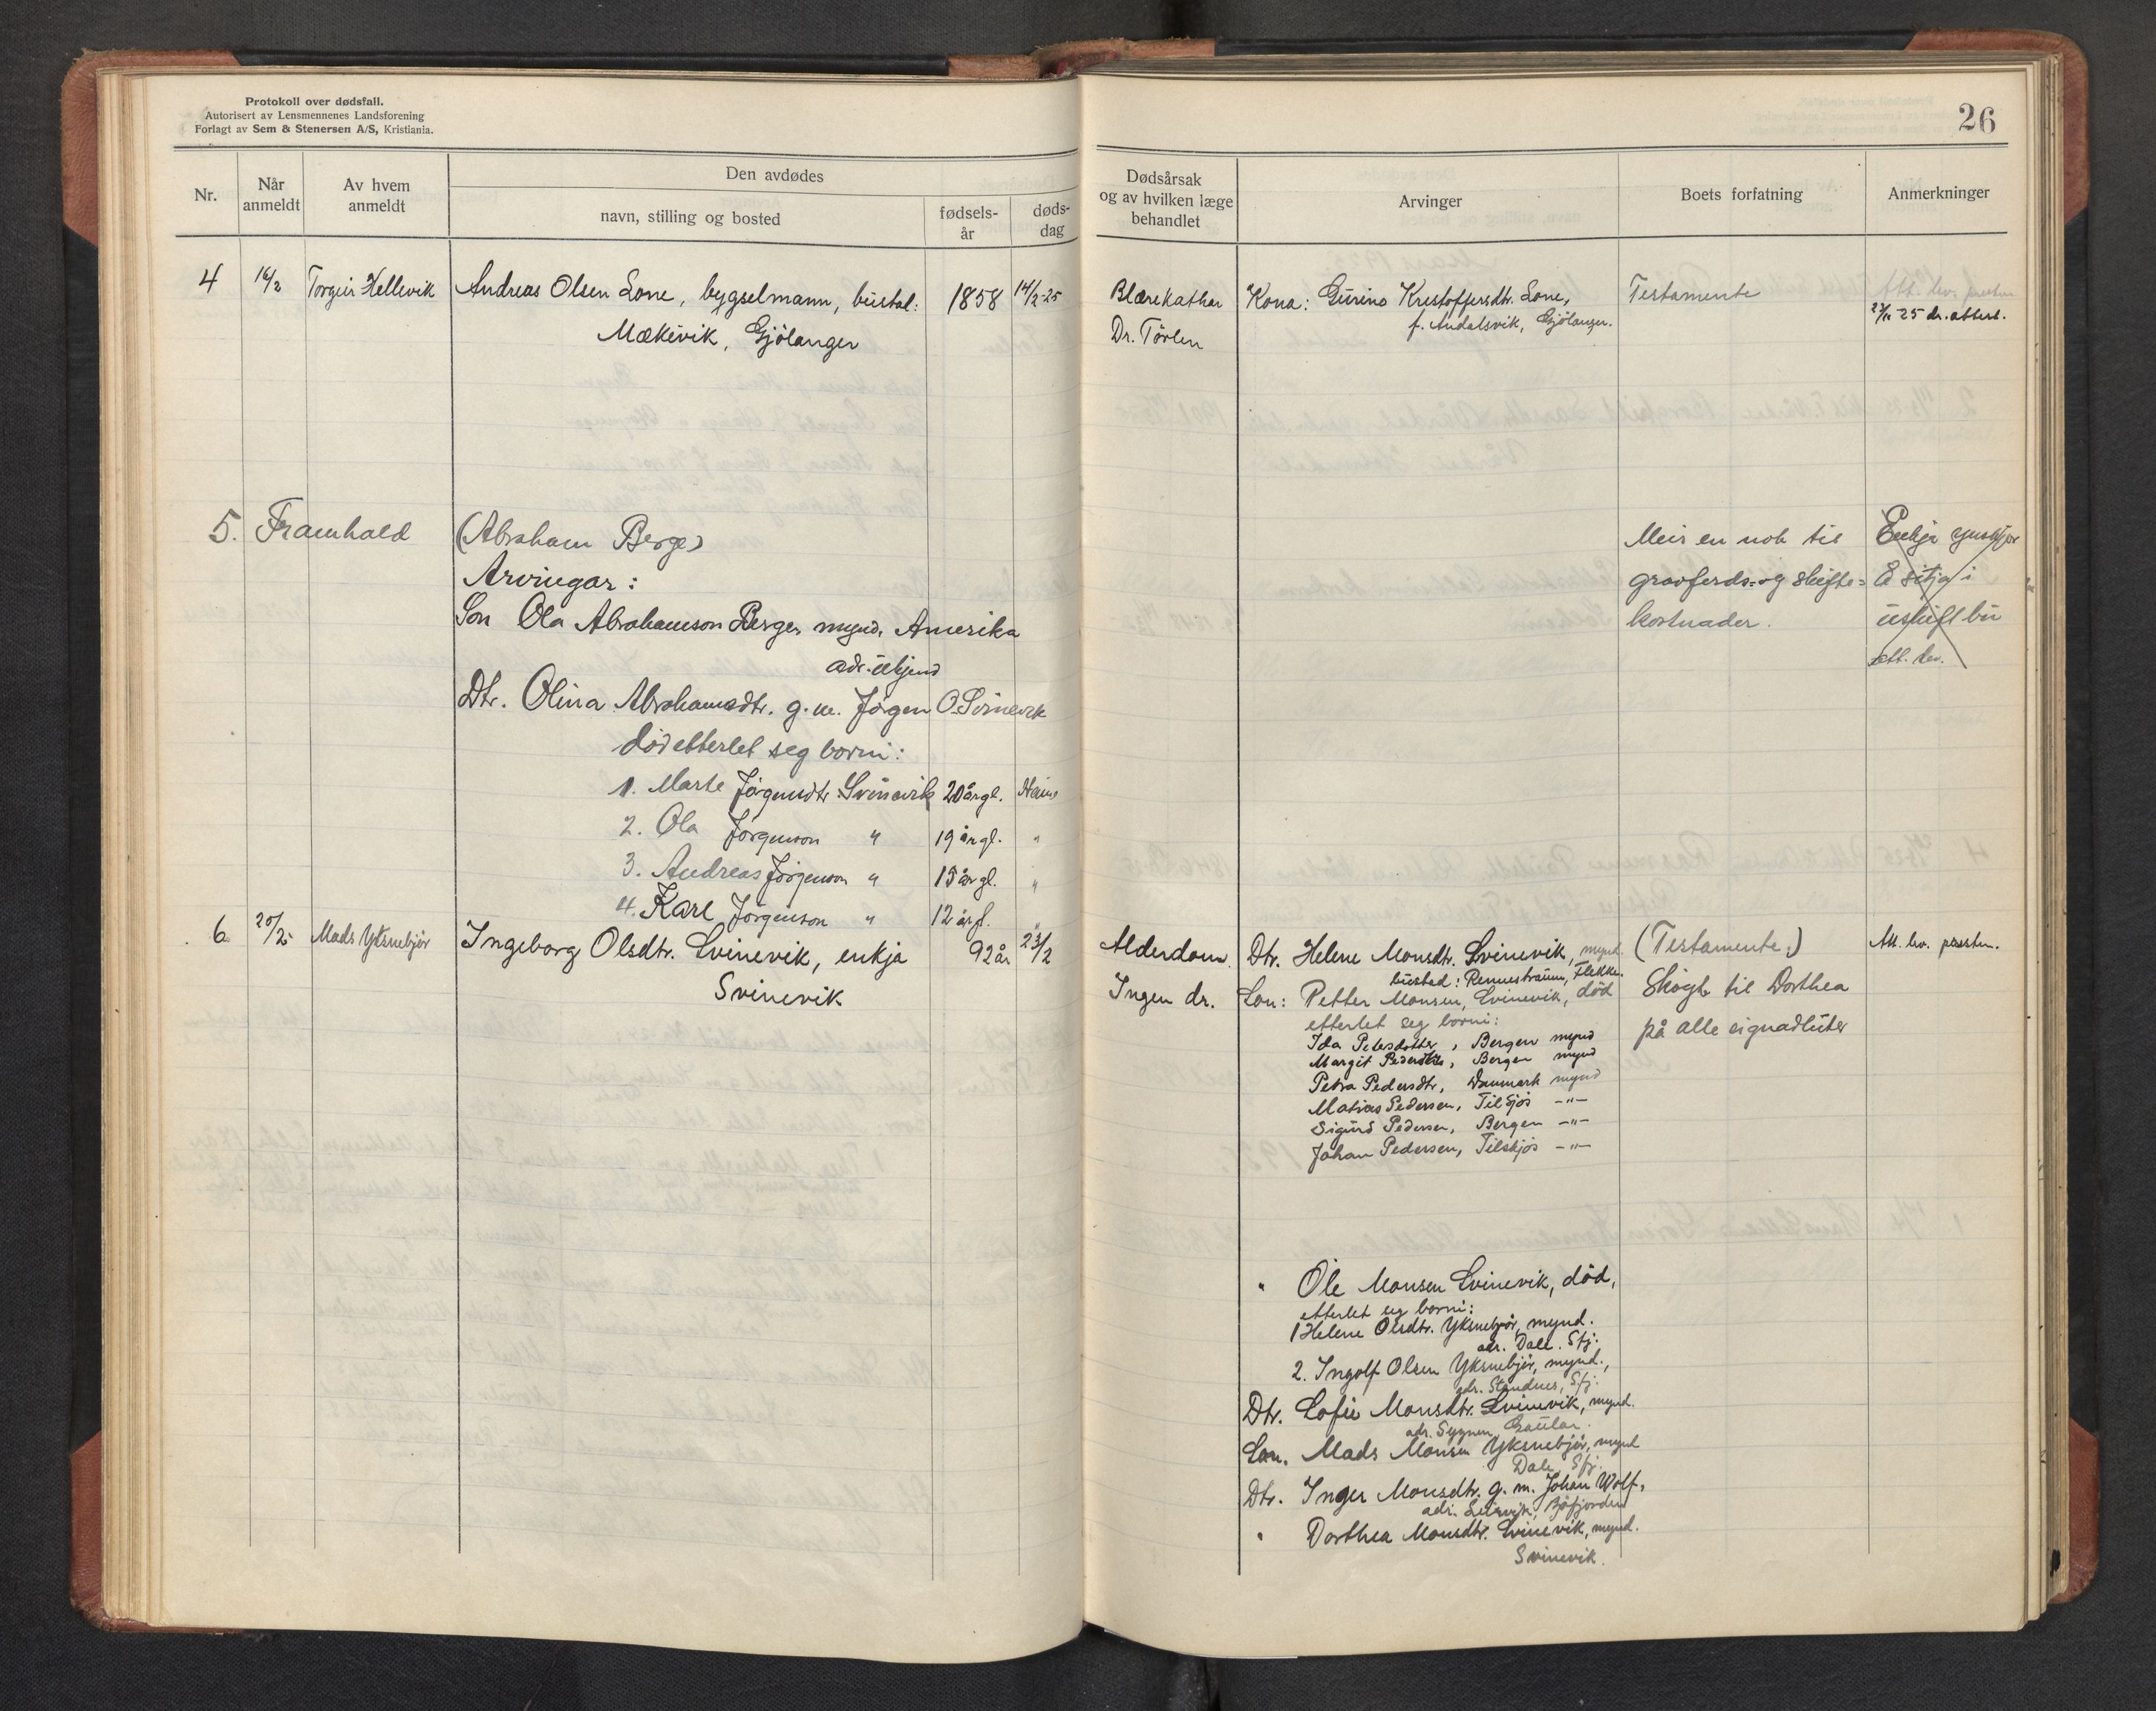 Protokoll over dødsfall.
Autorisert av Lensmennenes Landsforening
Forlagt av Sem & Stenersen A/S, Kristiania.
Nr.
Når anmeldt
Av hvem anmeldt
Den avdødes
navn, stilling og bosted
fødsels-år
døds-dag
4 16/2 Torgeir Hellevik Andreas Olsen Lone, bygselmann, bustad: 1858 14/2-25
Mækevik, Gjölanger
5. Framhald (Abraham Berge)
Arvingar:
Son Ola Abrahamson Berge, mynd. Amerika
adr. ukjend
Dtr. Olina Abrahamsdtr. g.m. Jörgen O. Svinevik
död etterlet seg borni:
1. Marte Jörgensdtr. Svinevik 20 år gl. Heime
2. Ola Jörgenson " 19 år gl. "
3. Andreas Jörgenson " 15 år gl. "
4. Karl Jörgenson " 12 år gl. "
6. Mads Yksnebjör Ingeborg Olsdtr. Svinevik, enkja 92 år 23/2
Svinevik
26
Dødsårsak
og av hvilken læge
behandlet
Arvinger
Boets forfatning
Anmerkninger
Blærekathar Kona: Gurine Kristoffersdtr. Lone, Testamente
f. Andalsvik, Gjölanger. -25 dr. attest.
Dr. Törlen
Meir en nok til Enkja
gravferds- og skifte- å sitja i
kostnader. uskift bu
att. lev.
Alderdom. Dtr. Helene Monsdtr. Svinevik, mynd. (Testamente:) Att. lev. presten.
bustad: Rennestraum, Flekke.
Ingen dr. Son: Petter Monsen, Svinevik, död Skøyt til Dorthea
etterlet seg borni: på alle eignadluter
Ida Petersdotter, Bergen mynd
Margit Pedersdtr, Bergen mynd
Petra Pedersdtr, Danmark mynd
Matias Pedersen, Tilsjös -"-
Sigurd Pedersen, Bergen -"-
Johan Pedersen, Tilskjös -"-
" Ole Monsen Svinevik, död,
etterlet seg borni:
1 Helene Olsdtr. Yksnebjör, mynd.
adr. Dale. Sfj.
2. Ingolf Olsen Yksnebjör, mynd.,
adr. Standnes, Sfj.
Dtr. Sofie Monsdtr. Svinevik, mynd.
adr. Sygnen, Gaular.
Son. Mads Monsen Yksnebjör, mynd
Dale, Sfj.
Dtr. Inger Monsdtr. g.m. Johan Wolf,
adr. Leirvik,
" Dorthea Monsdtr. Svinevik, mynd.
Svinevik.